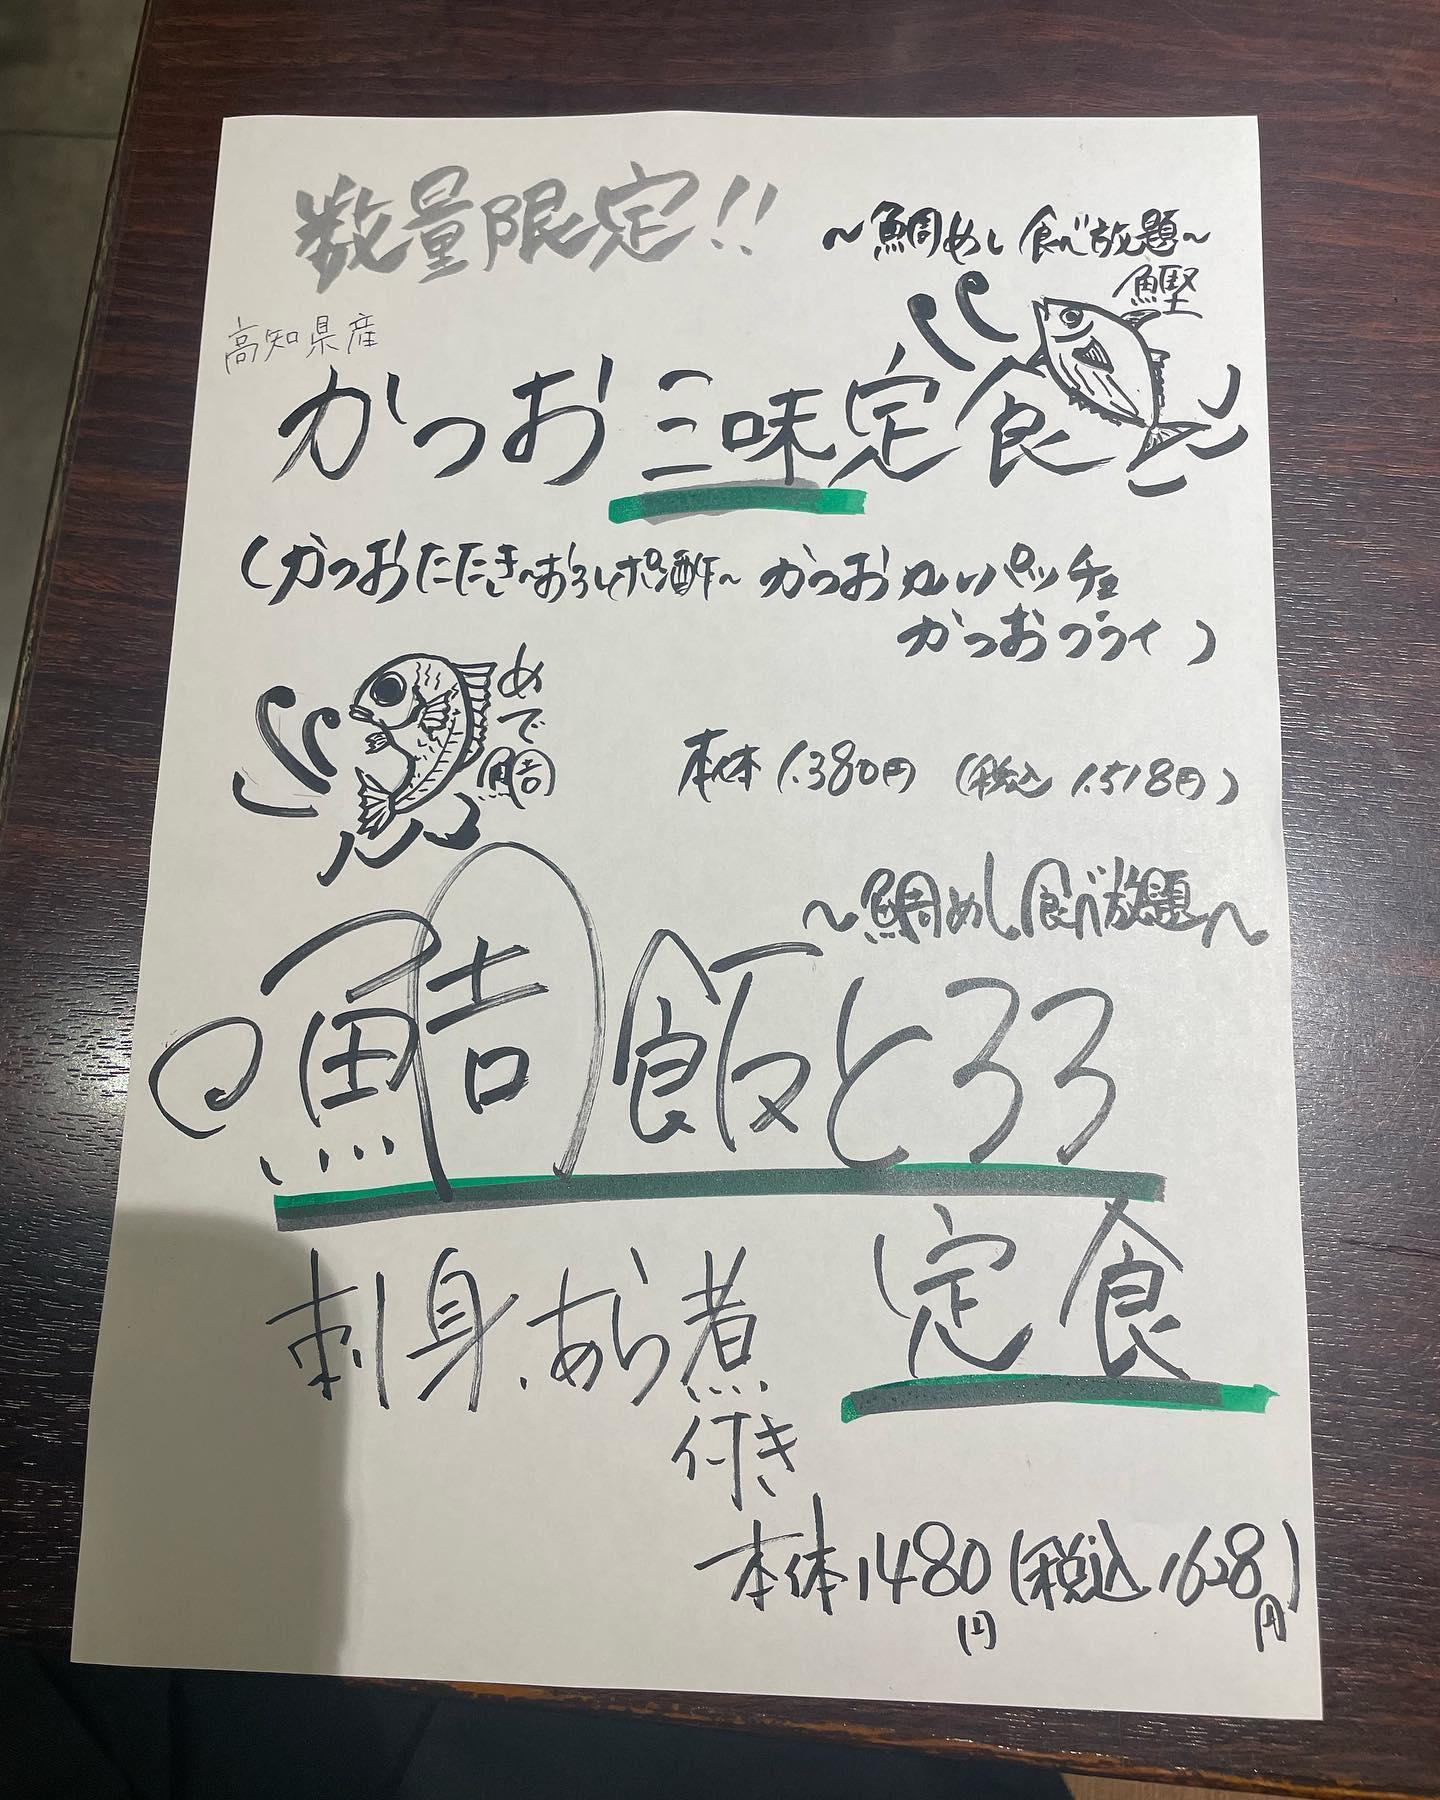 数量限定!!
～鯛めし食べ放題～
鰹
高知県産
かつお三味定食
(かつおたたき～おろしポン酢～ かつおカルパッチョ
かつおフライ)
めで鯛
本体1.380円 (税込 1.518円)
～鯛めし食べ放題～
鯛飯とろろ
定食
刺身、あら煮
付き
本体1480円(税込1628円)